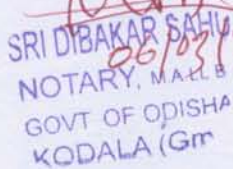 SRI DIBAKAR SAHU
NOTARY, MALL B
GOVT OF ODISHA
KODALA (Gm